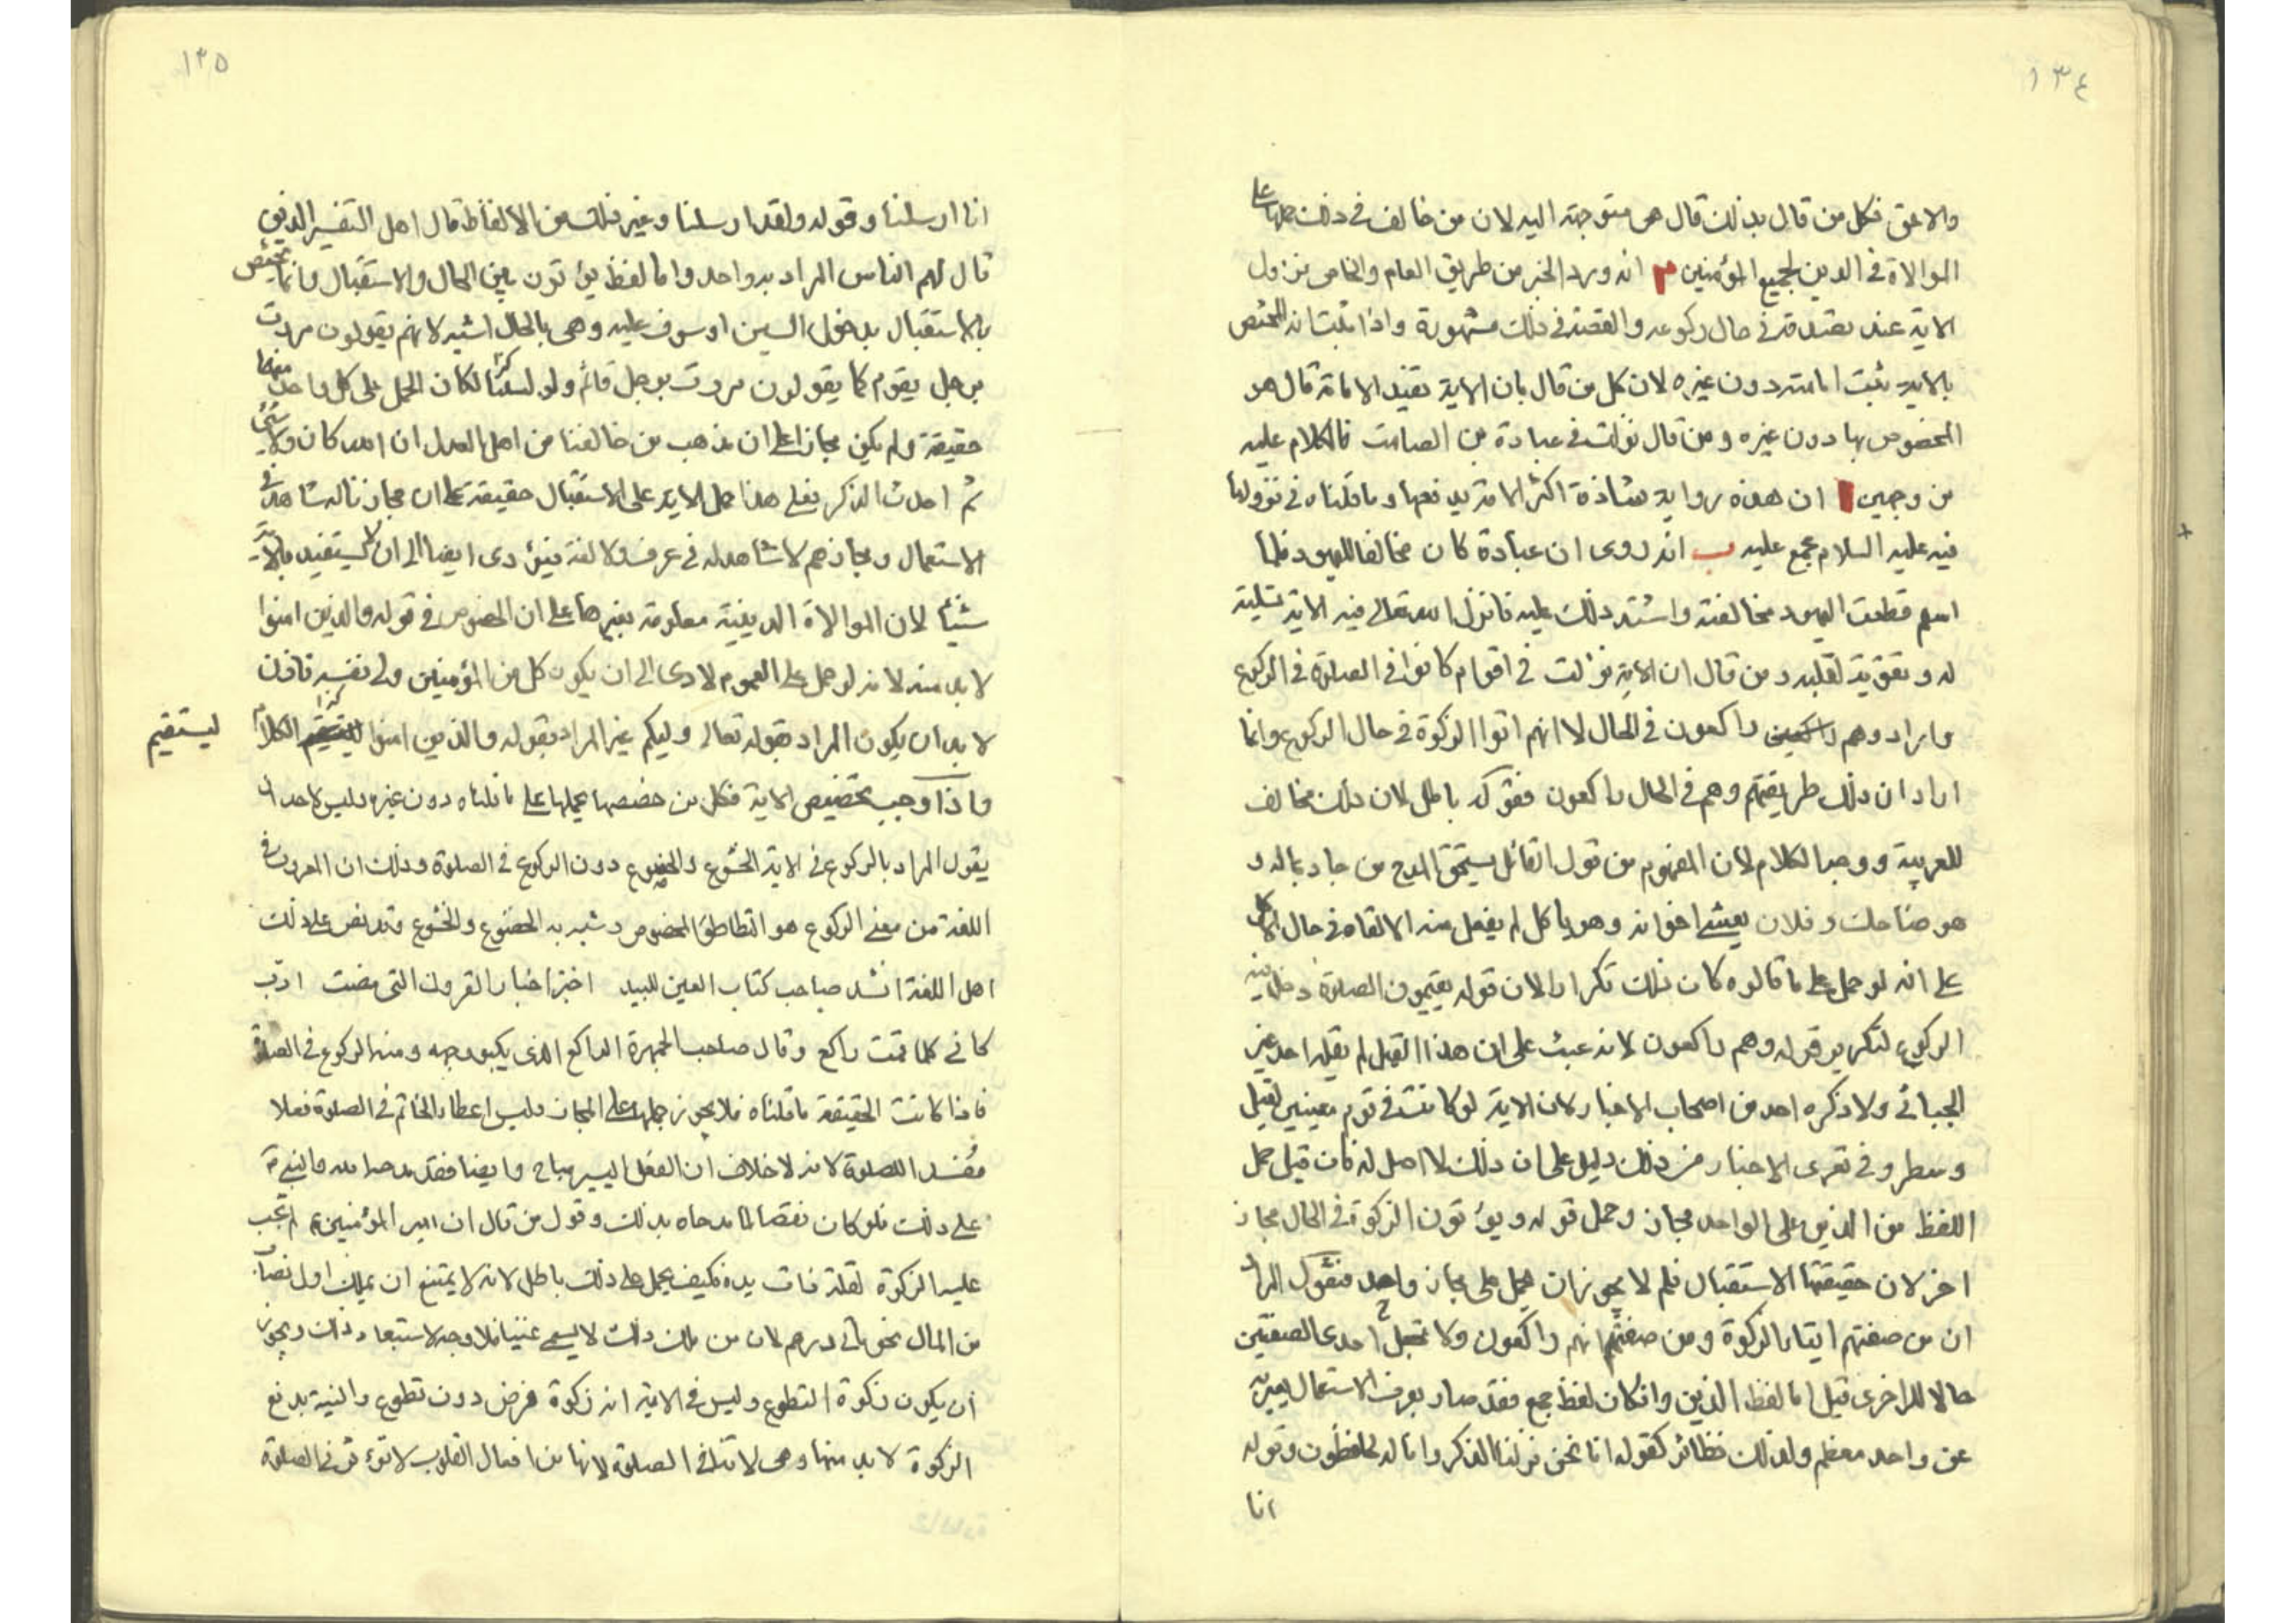 ١٣٤
والاحق فكل من قال بذلك قال هى متوجهة اليه لان من خالف فى ذلك حملها على
الموالاة فى الدين لجميع المؤمنين م انه ورد الخبر من طريق العام والخاص بنزول
الاية عند تصدقه فى حال ركوعه والقصة فى ذلك مشهورة واذا ثبت انه المختص
بالاية ثبت امامته دون غيره لان كل من قال بان الاية تفيد الامامة قال هو
المخصوص بها دون غيره ومن قال نزلت فى عبادة بن الصامت فالكلام عليه
من وجهين ا ان هذه رواية شاذة اكثر الامة يدفعها وما قلناه فى نزولها
فيه عليه السلام مجمع عليه ب انه روى ان عبادة كان مخالفا لليهود فلما
اسلم قطعت اليهود مخالفته واشتد ذلك عليه فانزل الله تعالى فيه الاية تسلية
له وتقوية لقلبه ومن قال ان الاية نزلت فى اقوام كانوا فى الصلوة فى الركوع
واراد وهم راكعون فى الحال لا انهم اتوا الزكوة فى حال الركوع وانما
اراد ان ذلك طريقتهم وهم فى الحال راكعون فقوله باطل لان ذلك مخالف
للعربية ووجه الكلام لان المفهوم من قول القائل يستحق المدح من جاد بماله و
هو ضاحك وفلان يغشى اخوانه وهو ياكل لم يفعل منه الا لقاه فى حال الاكل
على انه لو حمل على ما قالوه كان ذلك تكرارا لان قوله يقيمون الصلوة دخل فيه
الركوع لتكرير قوله وهم راكعون لانه عبث على ان هذا القول لم يقله احد غير
الجبائى ولا ذكره احد من اصحاب الاخبار لان الاية لو كانت فى قوم معينين لنقل
وسطر وفى تعرى الاخبار من ذلك دليل على ان ذلك لا اصل له فان قيل حمل
اللفظ من الذين على الواحد مجاز وحمل قوله ويؤتون الزكوة فى الحال مجاز
اخر لان حقيقتها الاستقبال فلم لا يجوز ان يحمل على مجاز واحد فنقول المراد
ان من صفتهم ايتاء الزكوة ومن صفتهم انهم راكعون ولا تجعل احدى الصفتين
حالا للاخرى قيل اما لفظ الذين وان كان لفظ جمع فقد صار بعرف الاستعمال يعبر به
عن واحد معظم ولذلك نظائر كقوله انا نحن نزلنا الذكر وانا له لحافظون وقوله
انا
١٣٥
انا ارسلنا وقوله ولقد ارسلنا وغير ذلك من الالفاظ قال اهل التفسير الذين
قال لهم الناس المراد به واحد واما لفظ يؤتون بين الحال والاستقبال وانما يختص
بالاستقبال بدخول السين او سوف عليه وهى بالحال اشبه لانهم يقولون مررت
برجل يقوم كما يقولون مررت برجل قائم ولو كان الحمل على كل واحد منهما
حقيقة ولم يكن مجازا على ان مذهب من خالفنا من اهل العدل ان الله كان ولا شئ
ثم احدث الذكر فعلى هذا حمل الاية على الاستقبال حقيقة على ان مجازنا له شاهد فى
الاستعمال ومجازهم لا شاهد له فى عرف ولا لغة فيؤدى ايضا الى ان لا يستفيد بالاية
شيئا لان الموالاة الدينية معلومة بغيرها على ان الخصوص فى قوله والذين امنوا
لا بد منه لانه لو حمل على العموم لادى الى ان يكون كل من المؤمنين ولى نفسه فاذن
لا بد ان يكون المراد بقوله تعالى وليكم غير المراد بقوله والذين امنوا ليستقيم الكلام
ليستقيم
واذا وجب تخصيص الاية فكل من خصصها يحملها على ما قلناه دون غيره وليس لاحد ان
يقول المراد بالركوع فى الاية الخشوع والخضوع دون الركوع فى الصلوة وذلك ان المعروف فى
اللغة من معنى الركوع هو التطاطؤ المخصوص وشبه به الخضوع والخشوع وقد نص على ذلك
اهل اللغة انشد صاحب كتاب العين للبيد اخبر اخبار القرون التى مضت ادب
كانى كلما قمت راكع وقال صاحب الجمهرة الراكع الذى يكبو وجهه ومنه الركوع فى الصلوة
فاذا كانت الحقيقة ما قلناه فلا يجوز حملها على المجاز وليس اعطاء الخاتم فى الصلوة فعلا
مفسد الصلوة لانه لا خلاف ان الفعل اليسير مباح وايضا فقد مدحه الله والنبى
على ذلك فلو كان نقصا لما مدحاه بذلك وقول من قال ان امير المؤمنين لم تجب
عليه الزكوة لقلة ذات يده فكيف يحمل على ذلك باطل لانه لا يمتنع ان يملك اول نصاب
من المال نحو مائتى درهم لان من ملك ذلك لا يسمى غنيا فلا وجه لاستبعاد ذلك ويجوز
ان يكون زكوة التطوع وليس فى الاية انه زكوة فرض دون تطوع والنية بدفع
الزكوة لا بد منها وهى لا تنافى الصلوة لانها من افعال القلوب لا تؤثر فى الصلوة